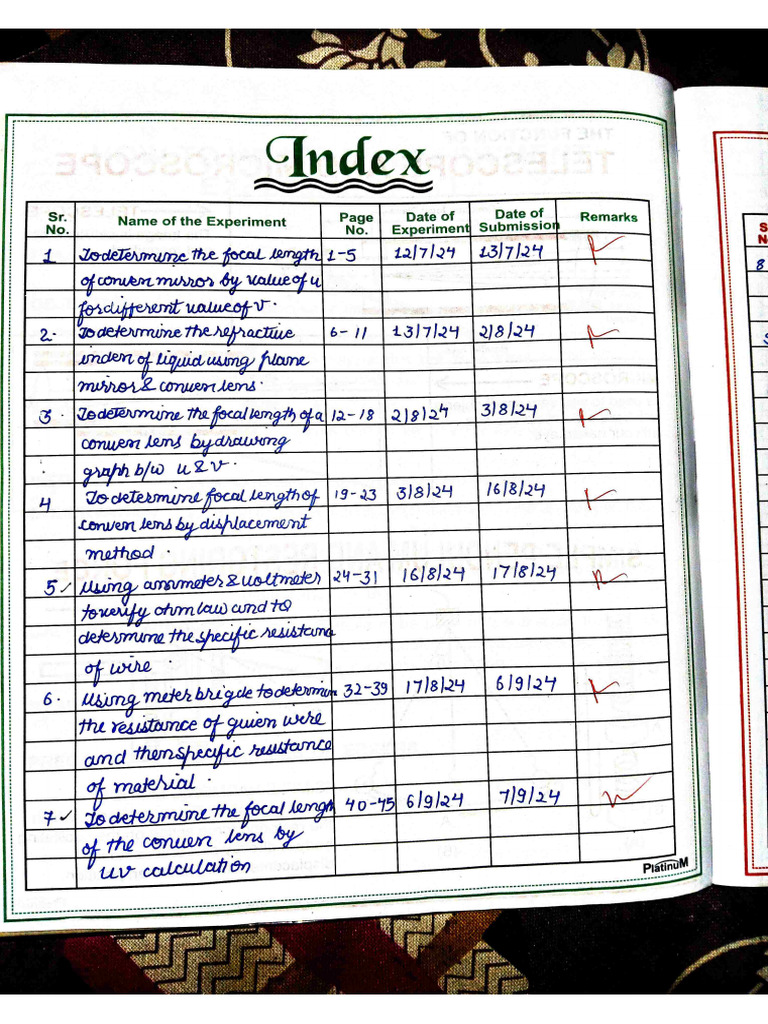 Index
Sr. No. Name of the Experiment Page No. Date of Experiment Date of Submission Remarks
1 To determine the focal length 1-5 12/7/24 13/7/24
of conven mirros by value of u
for different value of v.
2. To determine the refractive 6-11 13/7/24 2/8/24
inden of liquid using plane
mirros & conven lens.
3. To determine the focal length of a 12-18 2/8/24 3/8/24
conven lens by drawing
graph b/w u & v.
4 To determine focal length of 19-23 3/8/24 16/8/24
conven lens by displacement
method.
5 Using ammeter & voltmeter 24-31 16/8/24 17/8/24
to verify ohm law and to
determine the specific resistanc
of wire
6. Using meter brigde to determin 32-39 17/8/24 6/9/24
the resistance of guien wire
and then specific resistance
of material.
7 To determine the focal length 40-45 6/9/24 7/9/24
of the conven lens by
uv calculation
PlatinuM
8